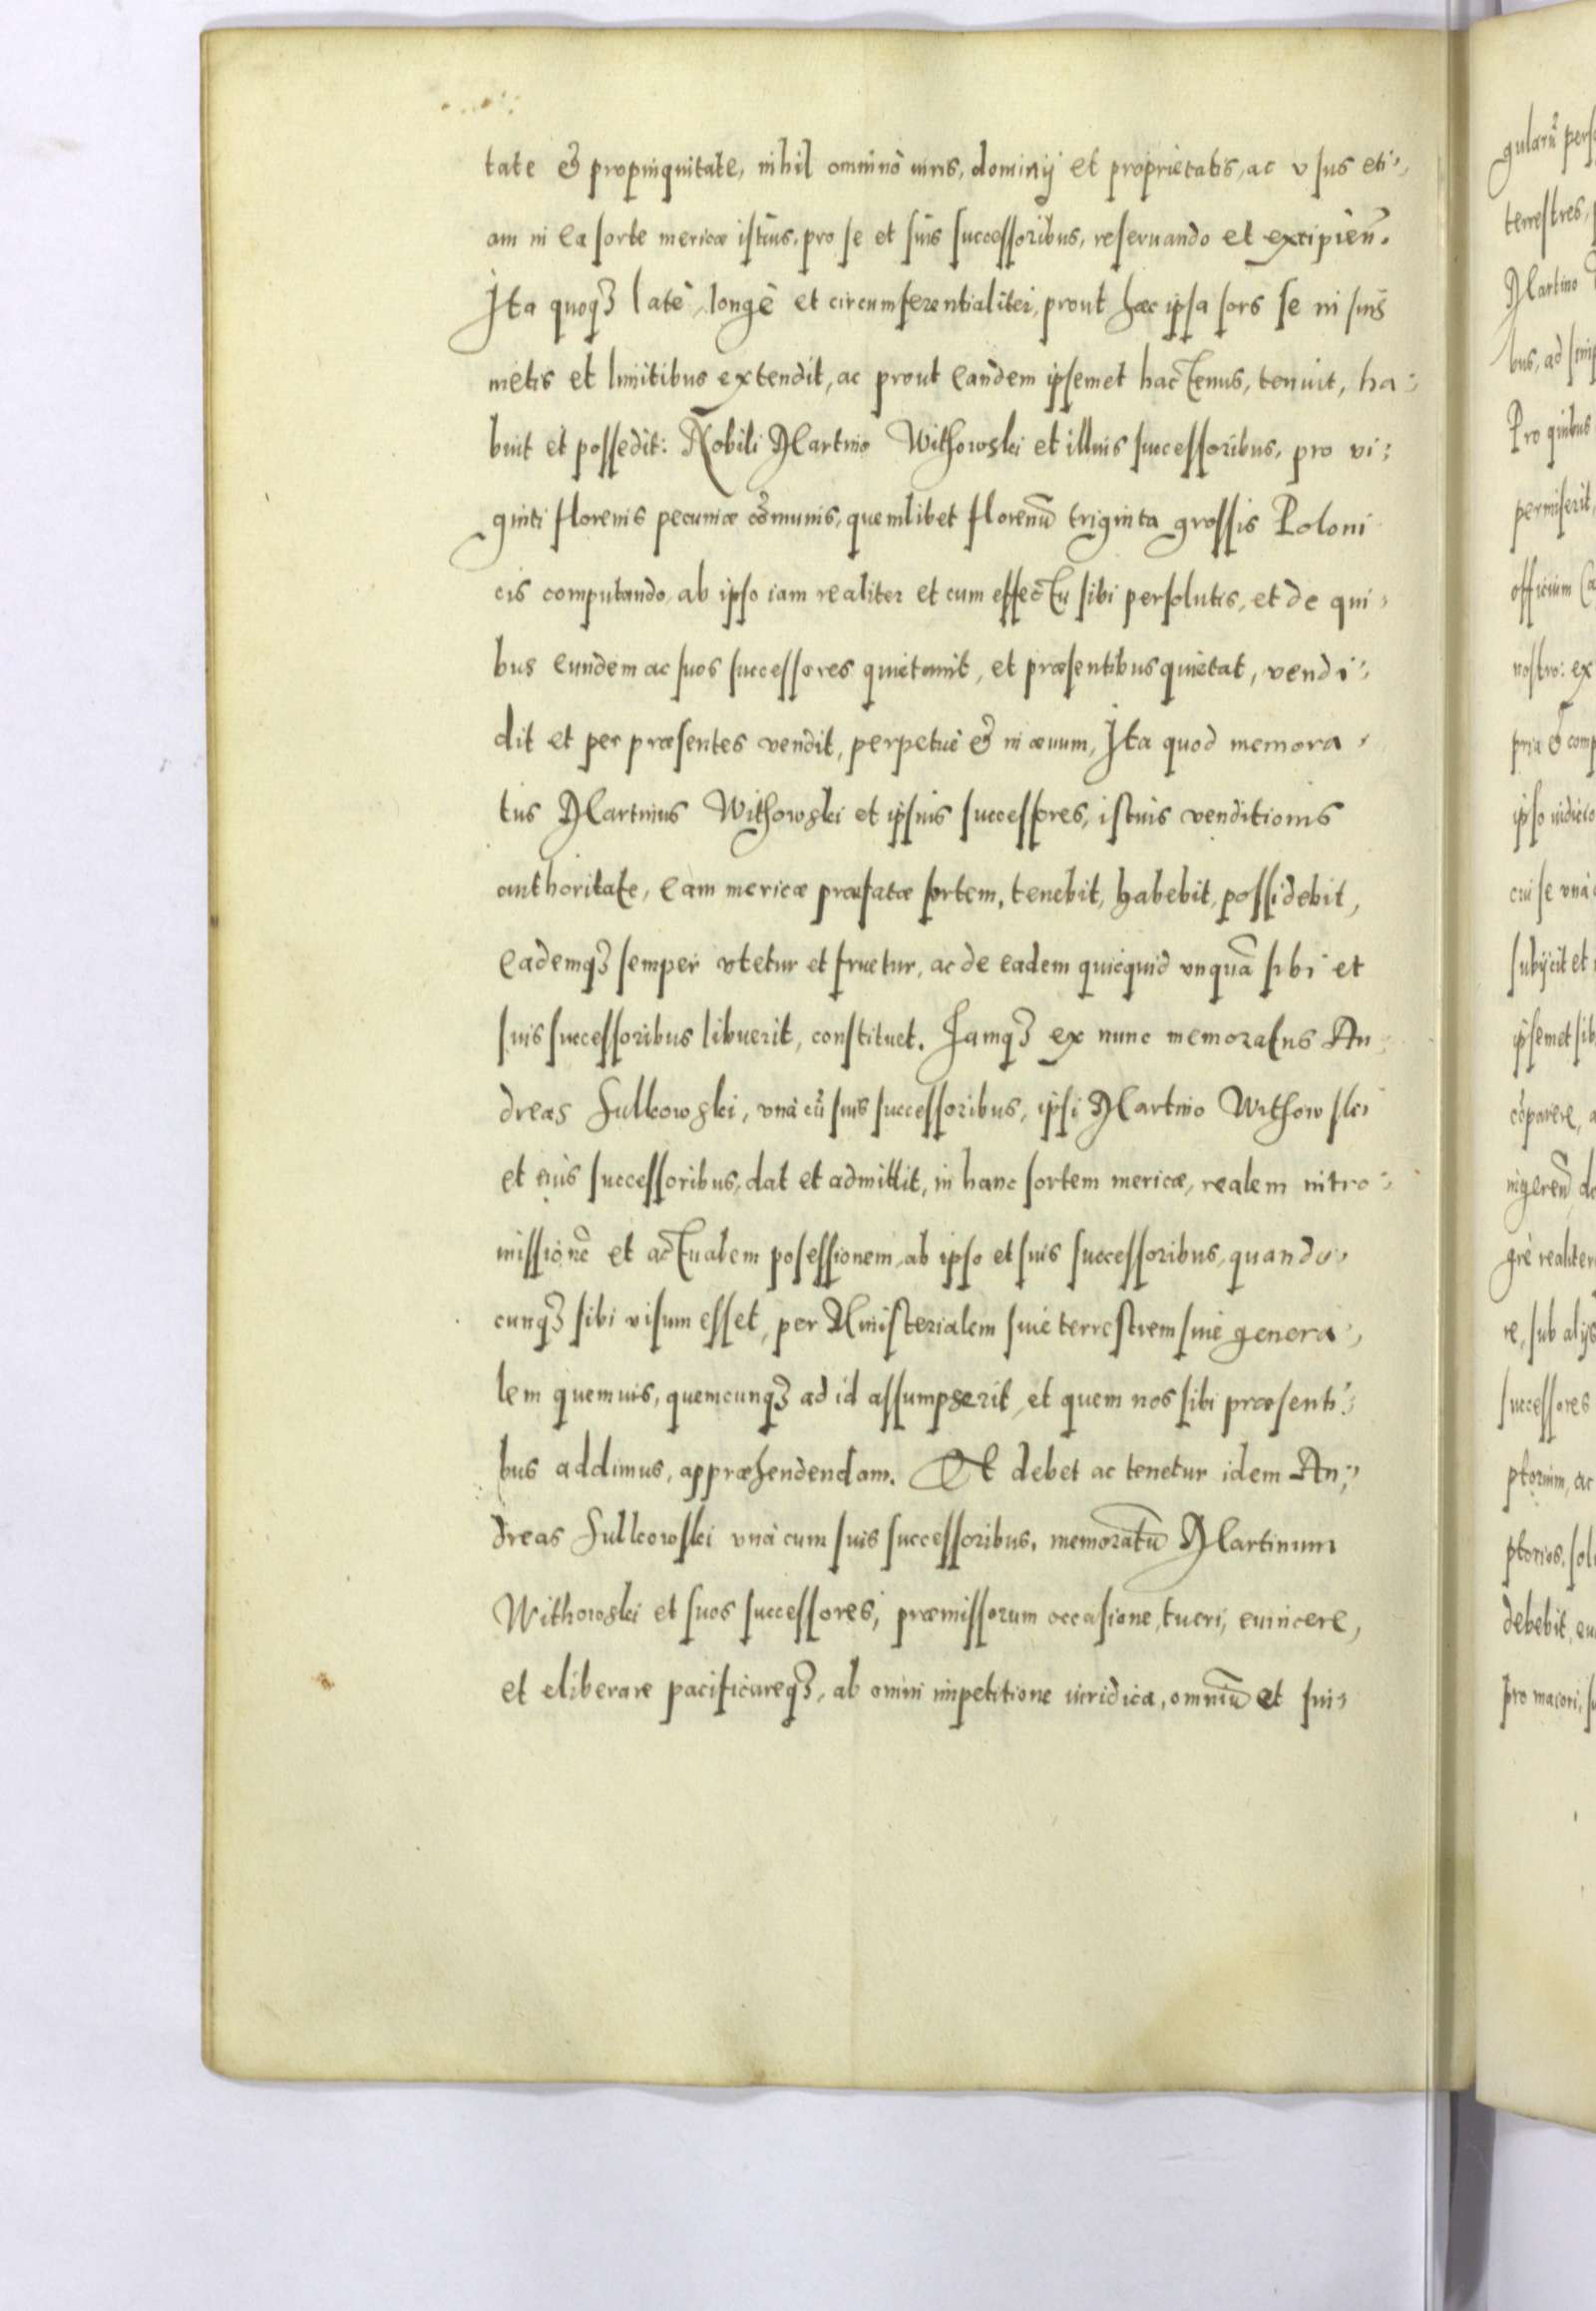 tate & propinquitate, nihil omninò iuris, dominij et proprietatis, ac vsus eti-
am in ea sorte mericæ istius, pro se et suis successoribus, reseruando et excipien̄.
Ita quoq3 latè, longè et circumferentialiter, prout hæc ipsa sors se in suis
metis et limitibus extendit, ac prout eandem ipsemet hactenus, tenuit, ha-
buit et possedit: Nobili Martino Withowski et illius successoribus, pro vi-
ginti florenis pecuniæ cōmunis, quemlibet florenū triginta grossis Poloni
cis computando, ab ipso iam realiter et cum effectu sibi persolutis, et de qui-
bus eundem ac suos successores quietauit, et præsentibus quietat, vendi-
dit et per præsentes vendit, perpetuè & in æuum, Ita quod memora-
tus Martinus Withowski et ipsius successores, istius venditionis
authoritate, eam mericæ præfatæ sortem, tenebit, habebit, possidebit,
eademq3 semper vtetur et fruetur, ac de eadem quicquid vnquā sibi et
suis successoribus libuerit, constituet. Iamq3 ex nunc memoratus An-
dreas Sulkowski, vnà cū suis successoribus, ipsi Martino Withowski
et eius successoribus, dat et admittit, in hanc sortem mericæ, realem intro-
missionē et actualem posessionem, ab ipso et suis successoribus, quando-
cunq3 sibi visum esset, per Ministerialem siue terrestrem siue genera-
lem quemuis, quemcunq3 ad id assumpserit, et quem nos sibi præsenti-
bus addimus, appræhendendam. Et debet ac tenetur idem An-
dreas Sulkowski vnà cum suis successoribus, memoratū Martinum
Withowski et suos successores, præmissorum occasione, tueri, euincere,
et eliberare pacificareq3, ab omni impetitione iuridica, omniū et sin-